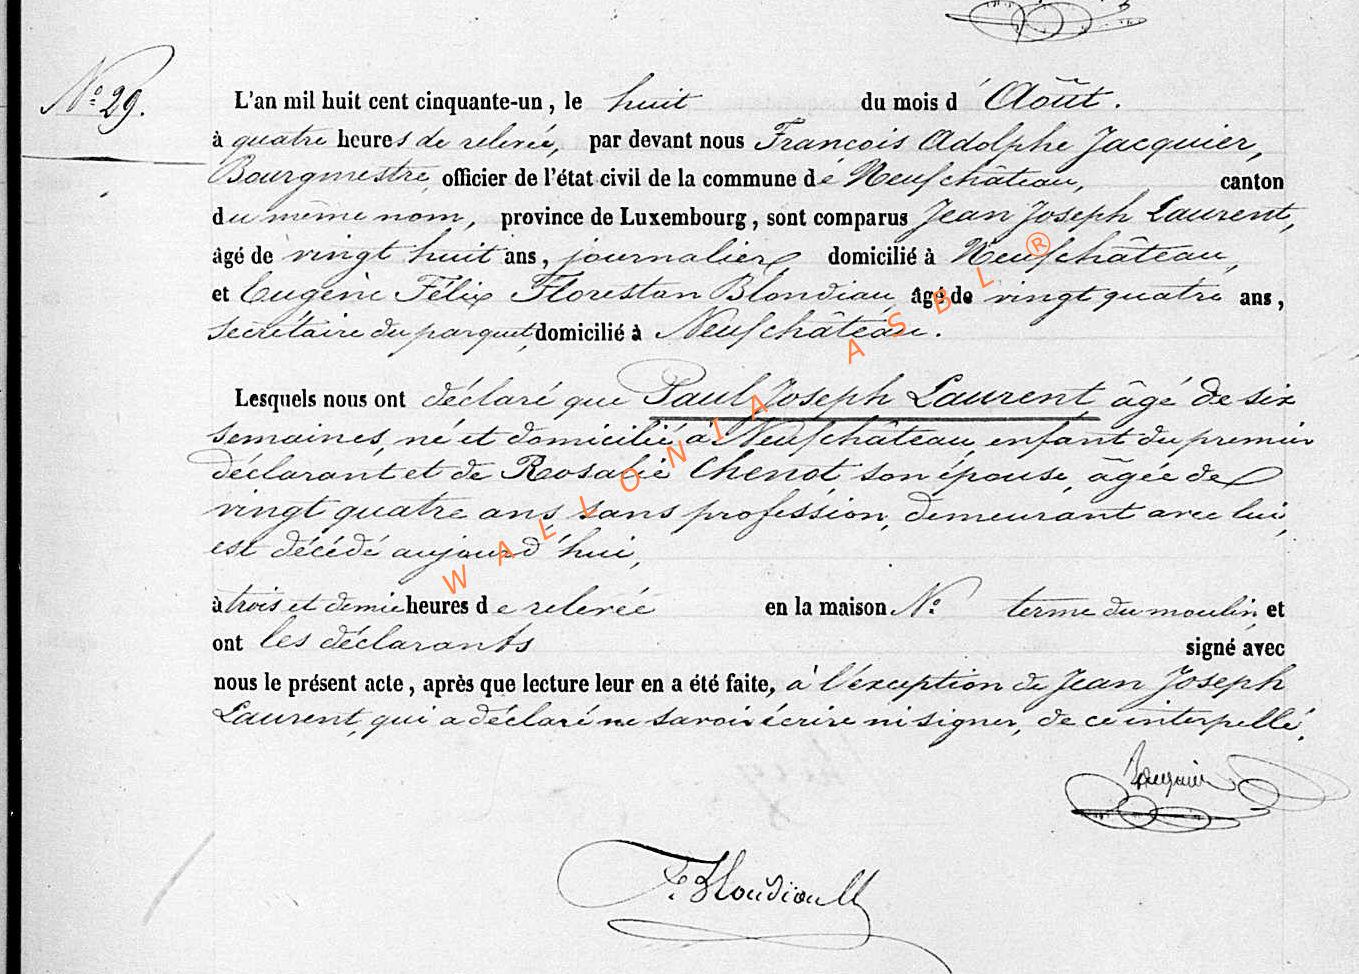 N° 29.
L'an mil huit cent cinquante-un, le huit du mois d'Août.
à quatre heures de relevée, par devant nous François Adolphe Jacquier,
Bourgmestre, officier de l'état civil de la commune de Neufchâteau, canton
du même nom, province de Luxembourg, sont comparus Jean Joseph Laurent,
âgé de vingt huit ans, journalier, domicilié à Neufchâteau,
et Eugène Félix Florestan Blondiau, âgé de vingt quatre ans,
secrétaire du parquet, domicilié à Neufchâteau.
Lesquels nous ont déclaré que Paul Joseph Laurent, âgé de six
semaines, né et domicilié à Neufchâteau, enfant du premier
déclarant et de Rosalie Chenot son épouse, âgée de
vingt quatre ans, sans profession, demeurant avec lui,
est décédé aujourd'hui,
à trois et demie heures de relevée en la maison N° terme du moulin, et
ont les déclarants signé avec
nous le présent acte, après que lecture leur en a été faite, à l'exception de Jean Joseph
Laurent, qui a déclaré ne savoir écrire ni signer, de ce interpellé.
Jacquier
F. Blondiau
WALLONIA ASBL ®